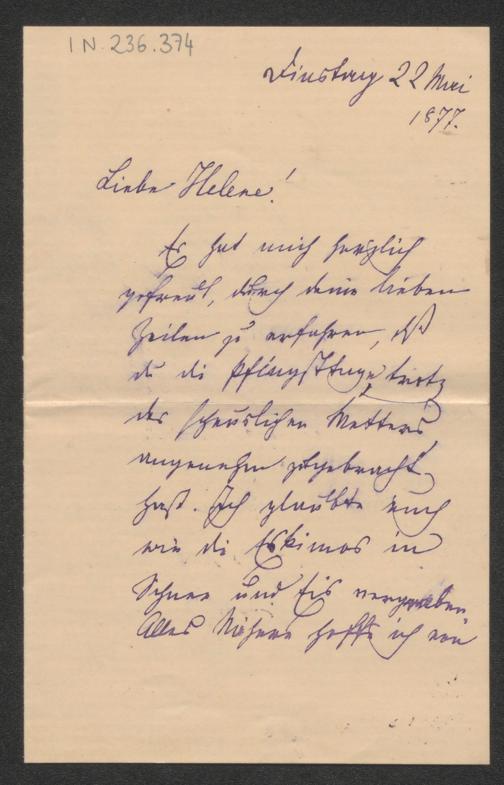 IN 236.374
Dinstag 22 Mai
1877.
Liebe Helene!
Es hat mich herzlich
gefreut, durch deine lieben
Zeilen zu erfahren, dß
du die Pfingsttage trotz
des scheuslichen Wetters
angenehm zugebracht
hast. Ich glaubte euch
wie die Eskimos in
Schnee und Eis vergraben
Alles Nähere hoffe ich von